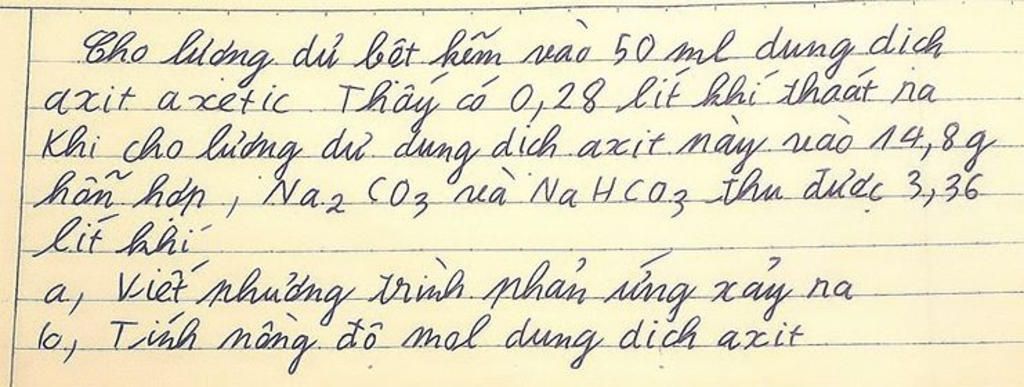 Cho lượng dư bột kẽm vào 50 ml dung dịch
axit axetic Thấy có 0,28 lít khí thoát ra
Khi cho lượng dư dung dịch axit này vào 14,8g
hỗn hợp, Na2CO3 và NaHCO3 thu được 3,36
lít khí
a, Viết phương trình phản ứng xảy ra
b, Tính nồng độ mol dung dịch axit